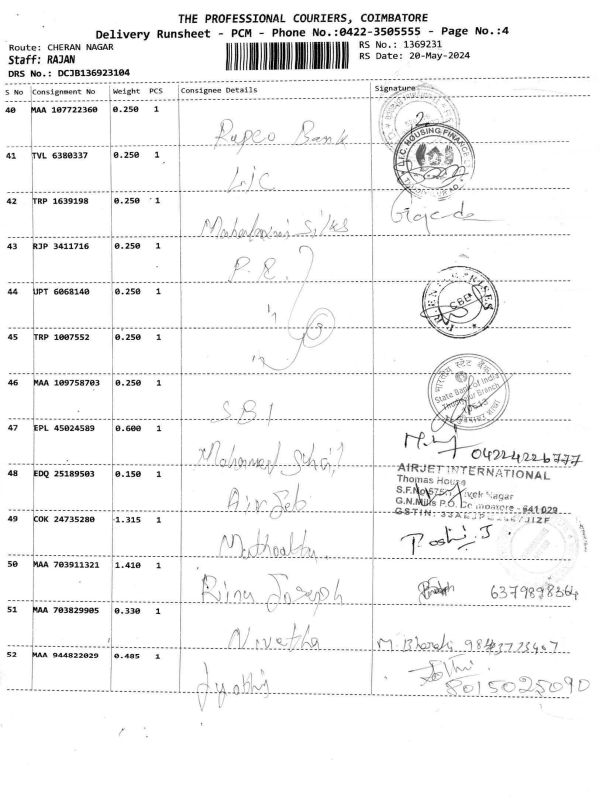 THE PROFESSIONAL COURIERS, COIMBATORE
Delivery Runsheet - PCM - Phone No.:0422-3505555 - Page No.:4
Route: CHERAN NAGAR
RS No.: 1369231
Staff: RAJAN
RS Date: 20-May-2024
DRS No.: DCJB136923104
S No Consignment No Weight PCS Consignee Details Signature
40 MAA 107722360 0.250 1
Repco Bank
41 TVL 6380337 0.250 1
LIC
L.I.C. HOUSING FINANCE
42 TRP 1639198 0.250 1
Mahalaxmi Silks
43 RJP 3411716 0.250 1
P. E.
44 UPT 6068140 0.250 1
45 TRP 1007552 0.250 1
46 MAA 109758703 0.250 1
SBI
भारतीय स्टेट बैंक
State Bank of India
Branch
47 EPL 45024589 0.600 1
Mohammed
04224226777
48 EDQ 25189503 0.150 1
AirJet
AIRJET INTERNATIONAL
Thomas House
Nagar
G.N.Mills P.O. Coimbatore - 641 029
49 COK 24735280 1.315 1
50 MAA 703911321 1.410 1
Rinu Joseph
6379898364
51 MAA 703829905 0.330 1
Nivetha
M. Bharathi
52 MAA 944822029 0.485 1
8015025090